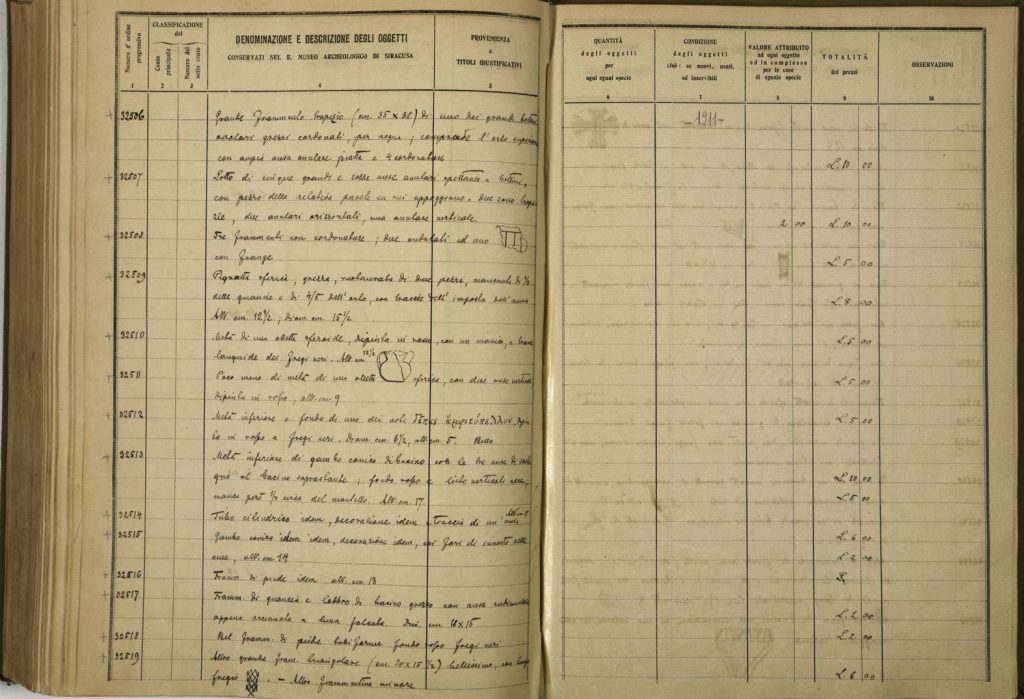 Numero d'ordine progressivo
CLASSIFICAZIONE del
Conto principale
Numero del sotto conto
DENOMINAZIONE E DESCRIZIONE DEGLI OGGETTI
CONSERVATI NEL R. MUSEO ARCHEOLOGICO DI SIRACUSA
PROVENIENZA
e
TITOLI GIUSTIFICATIVI
QUANTITÀ
degli oggetti
per
ogni egual specie
CONDIZIONE
degli oggetti
cioè: se nuovi, usati,
od inservibili
VALORE ATTRIBUITO
ad ogni oggetto
od in complesso
per le cose
di eguale specie
TOTALITÀ
dei prezzi
OSSERVAZIONI
1 2 3 4 5 6 7 8 9 10
-1911-
32506 Grande frammento trapezio (cm. 35 x 38) di uno dei grandi
ovolari grezzi cordonati, per acqua; comprende l'orlo
con ampia ansa anulare piatta e 4 cordonature L. 10 00
32507 Lotto di cinque grandi e anse anulari spettanti a
con pezzo della relativa parete su cui appoggiano. due sono
, due anulari orizzontali, una anulare verticale. 2 00 L. 10 00
32508 Tre frammenti con cordonature; due ondulati ed uno
con frange L. 5 00
32509 Pignatta sferica, grezza, restaurata di due pezzi, mancante di
delle guancie e di 4/5 dell'orlo, con traccie dell'imposta dell'ansa
Alt. cm. 12 1/2; diam. cm. 15 1/2 L. 8 00
32510 Metà di una olletta sferoide, dipinta in rosso, con un manico, e
languide dei fregi neri. Alt. cm. 12 1/2 L. 5 00
32511 Poco meno di metà di una olletta sferica, con due anse
dipinta in rosso, alt. cm. 9 L. 5 00
32512 Metà inferiore o fondo di uno dei soli δέπας ἀμφικύπελλον,
in rosso a fregi neri. Diam. cm. 6 1/2, alt. cm. 5. Bello L. 5 00
32513 Metà inferiore di gambo conico di bacino con le tre anse di
al bacino soprastante; fondo rosso e liste verticali nere;
manca però 1/2 circa del mantello. Alt. cm. 17 L. 10 00
L. 5 00
32514 Tubo cilindrico idem, decorazione idem e traccia di un'ansa
32515 Gambo conico idem idem, decorazione idem, coi fori di nelle
anse, alt. cm. 14 L. 6 00
L. 2 00
32516 Framm. di piede idem alt. cm. 13
32517 Framm. di guancia e labbro di bacino grezzo con ansa rudimentale
appena accennata a luna falcata. Dim. cm. 18 x 15 L. 2 00
32518 Bel framm. di piede tubiforme fondo rosso fregi neri L. 2 00
32519 Altro grande fram. triangolare (cm. 20 x 15 1/2) bellissimo, con
fregio. - Altro frammentino minore L. 6 00